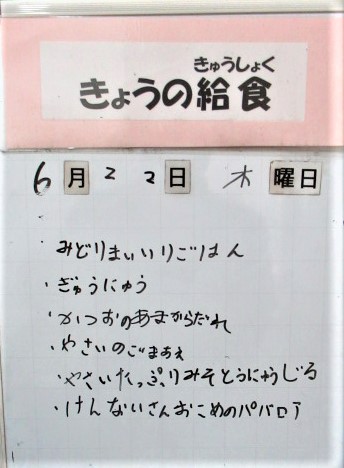 きゅうしょく
きょうの給食
6月22日 木曜日
・みどりまいいりごはん
・ぎゅうにゅう
・かつおのあまからだれ
・やさいのごまあえ
・やさいたっぷりみそとうにゅうじる
・けんないさんおこめのババロア